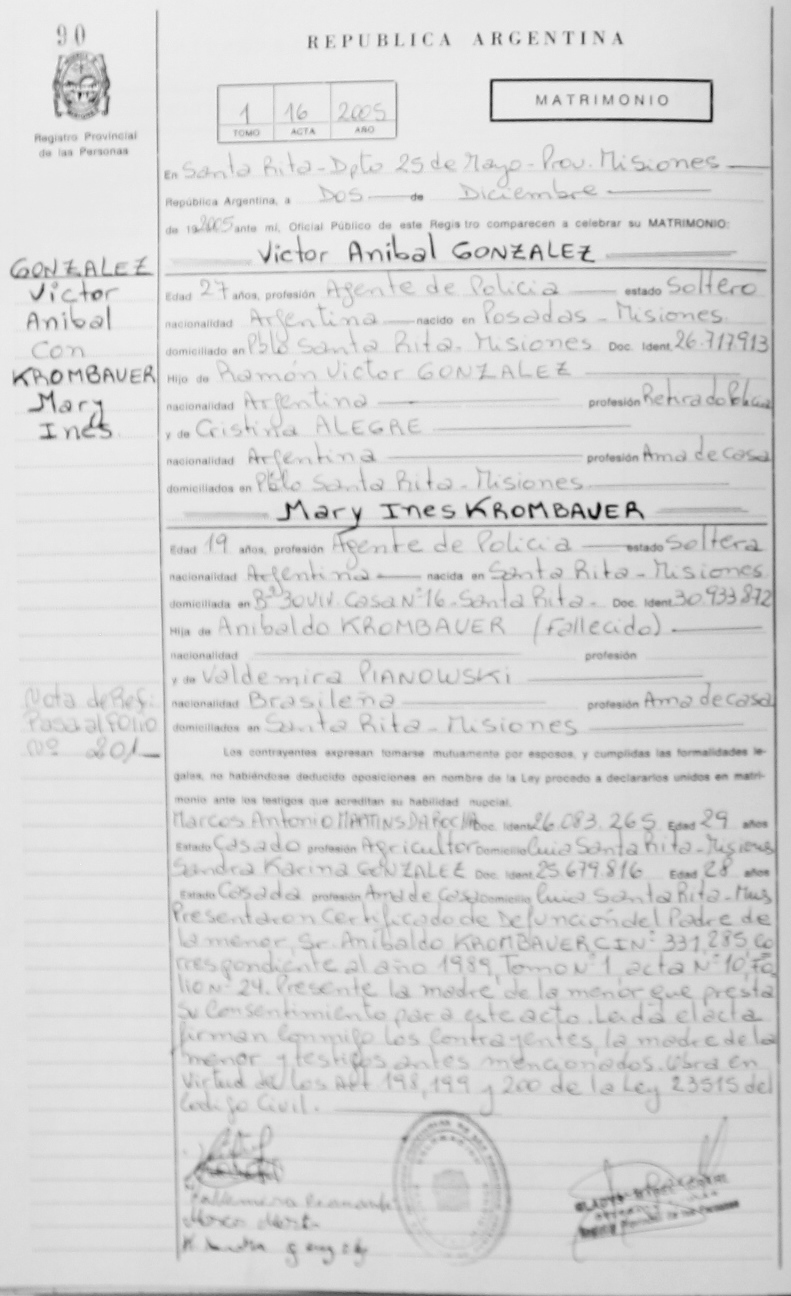 90
REPUBLICA ARGENTINA
1 16 2005
TOMO ACTA AÑO
MATRIMONIO
Registro Provincial
de las Personas
En Santa Rita - Dpto 25 de Mayo - Prov. Misiones
República Argentina, a Dos de Diciembre
de 19 2005 ante mi, Oficial Público de este Registro comparecen a celebrar su MATRIMONIO:
Victor Anibal GONZALEZ
GONZALEZ
Victor
Anibal
Con
KROMBAUER
Mary
Inés
Edad 27 años, profesión Agente de Policia estado Soltero
nacionalidad Argentina nacido en Posadas - Misiones
domiciliado en Pblo Santa Rita - Misiones Doc. Ident. 26.717.913
Hijo de Ramón Victor GONZALEZ
nacionalidad Argentina profesión Retirado Policia
y de Cristina ALEGRE
nacionalidad Argentina profesión Ama de Casa
domiciliados en Pblo Santa Rita - Misiones
Mary Ines KROMBAUER
Edad 19 años, profesión Agente de Policia estado Soltera
nacionalidad Argentina nacida en Santa Rita - Misiones
domiciliada en Bº 30 viv. Casa Nº 16 - Santa Rita - Doc. Ident. 30.933.872
Hija de Anibaldo KROMBAUER (Fallecido)
nacionalidad profesión
y de Valdemira PIANOWSKI
nacionalidad Brasileña profesión Ama de casa
domiciliados en Santa Rita - Misiones
Nota de Ref:
Pasa al Folio
Nº 201
Los contrayentes expresan tomarse mutuamente por esposos, y cumplidas las formalidades le-
gales, no habiéndose deducido oposiciones en nombre de la Ley procedo a declararlos unidos en matri-
monio ante los testigos que acreditan su habilidad nupcial.
Marcos Antonio MARTINS DA ROCHA Doc. Ident. 26.083.265 Edad 29 años
Estado Casado profesión Agricultor Domicilio Santa Rita - Misiones
Sandra Karina GONZALEZ Doc. Ident. 25.679.816 Edad 28 años
Estado Casada profesión Ama de Casa Domicilio Santa Rita - Mnes
Presentaron Certificado de Defunción del Padre de
la menor, Sr. Anibaldo KROMBAUER CIN: 331.285 Co
rrespondiente al año 1989, Tomo Nº 1 acta Nº 10, Fo
lio Nº 24. Presente la madre de la menor que presta
su Consentimiento para este acto. Leida el acta
firman conmigo los Contrayentes, la madre de la
menor y testigos antes mencionados. Obra en
Virtud de los Art 198, 199 y 200 de la Ley 23515 del
Codigo Civil.